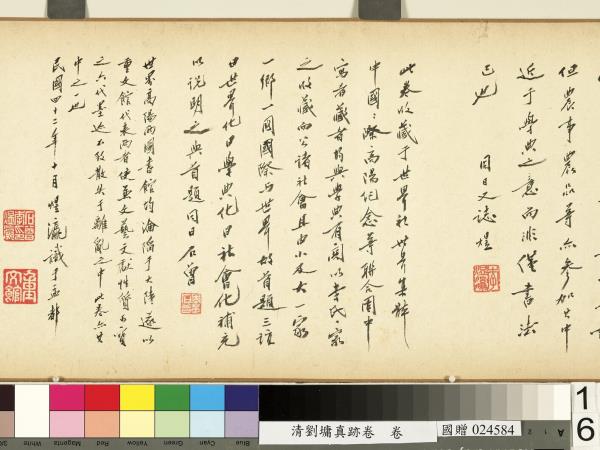 但農事農品等亦參加其中
近于學典之意而非僅書法
已也 同日又誌 煜
此卷收藏于世界社世界集辞
中國國際高陽紀念等聯合圖中
寫者藏者均與學典有關以李氏一家
之收藏而公諸社會且由小及大一家
一鄉一國國際與世界故首題三註
曰世界化曰學典化曰社會化補充
以說明之與首題同日 石曾
世界高陽兩圖書館均淪陷于大陸遂以
重文館代表兩者使其文藝文獻性質與
之六代墨迹不致散失于離亂之中此卷亦其
中之一也
民國四十二年十月 煜瀛識于孟都
16
Blue
Cyan
Green
Yellow
Red
Magenta
White
清劉墉真跡卷 卷
國贈 024584
A 1 2